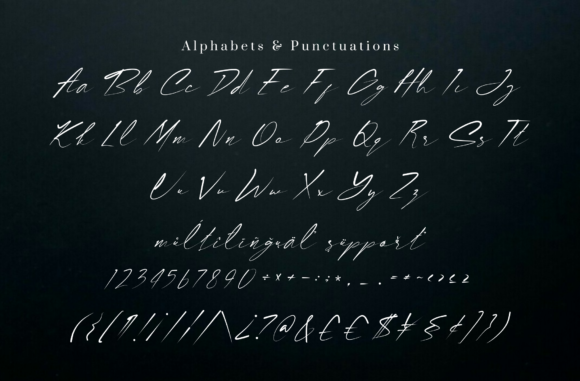 Alphabets & Punctuations
Aa Bb Cc Dd Ee Ff Gg Hh Ii Jj
Kk Ll Mm Nn Oo Pp Qq Rr Ss Tt
Uu Vv Ww Xx Yy Zz
multilingual support
1234567890 ÷×+-:;*.
({[¶!¡|/\¿?@&£€$¥§¢]})